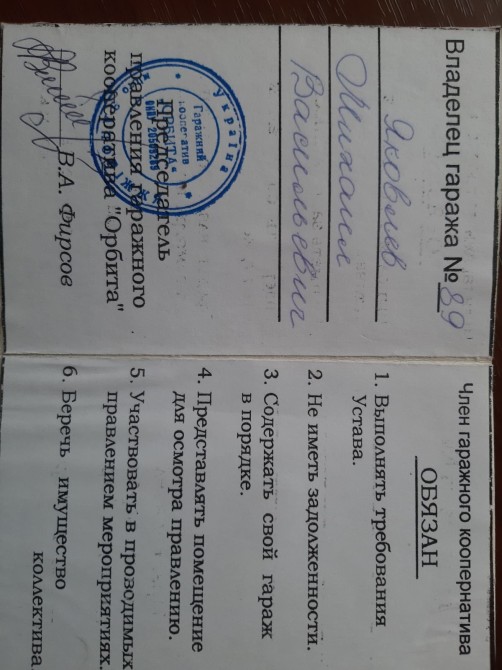 Владелец гаража № 89
Яковлев
Михаил
Васильевич
Председатель
правления гаражного
кооператива "Орбита"
В.А. Фирсов
Україна
Гаражний
кооператив
Член гаражного кооператива
ОБЯЗАН
1. Выполнять требования
Устава.
2. Не иметь задолженности.
3. Содержать свой гараж
в порядке.
4. Представлять помещение
для осмотра правлению.
5. Участвовать в проводимых
правлением мероприятиях.
6. Беречь имущество
коллектива